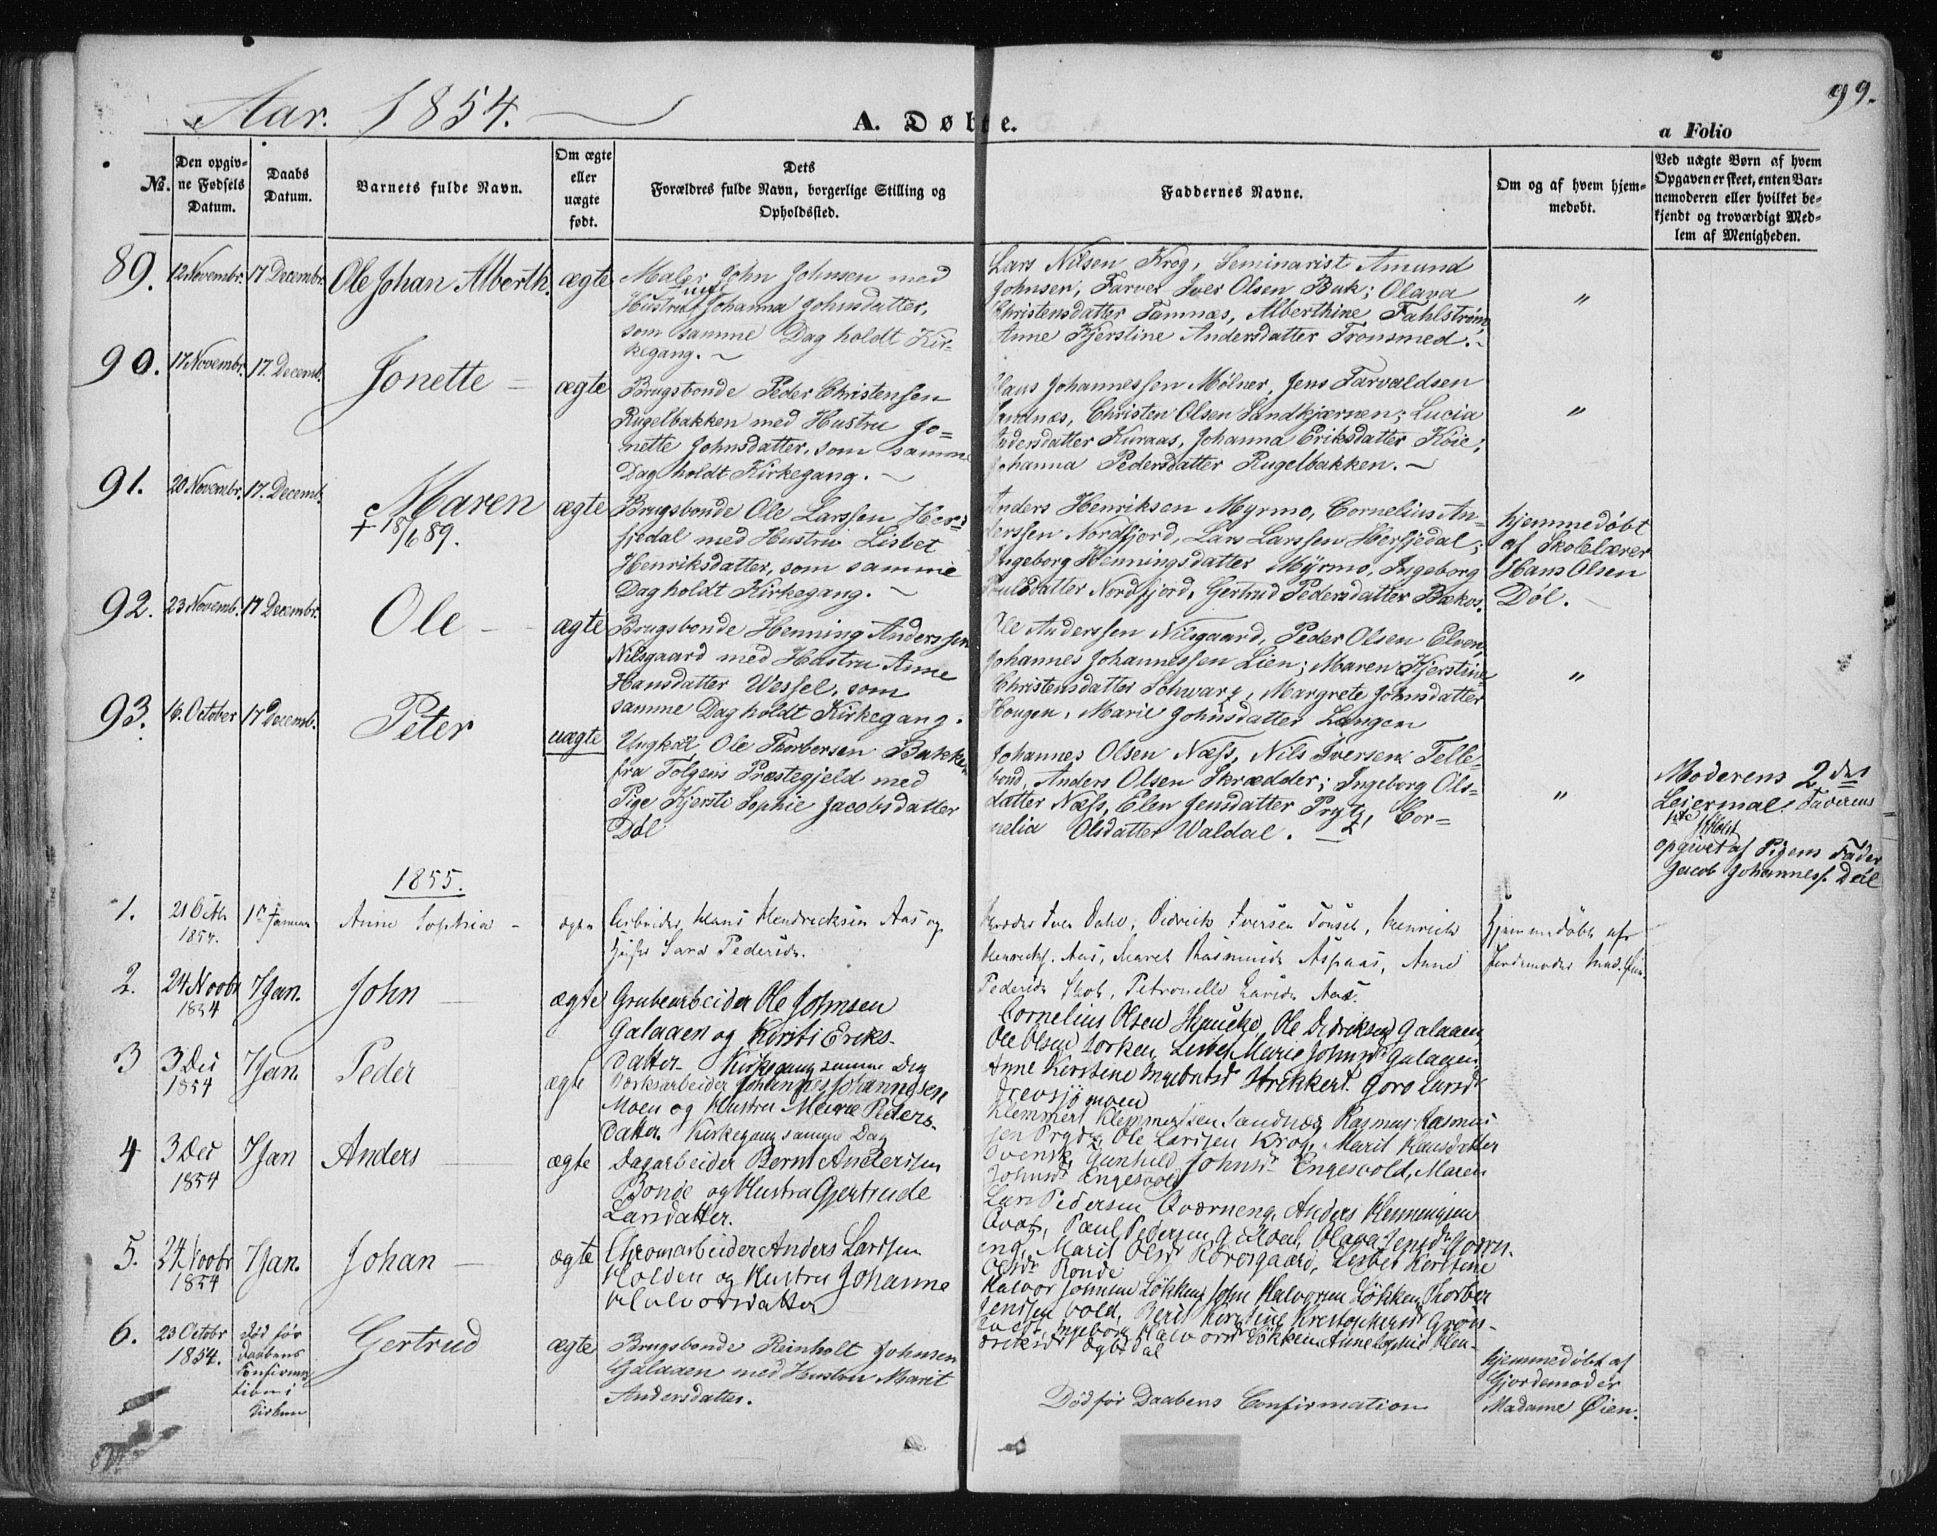 Aar. 1854.
A. Døbte.
99.
a Folio
No.
Den opgiv-
ne Fødsels
Datum.
Daabs
Datum.
Barnets fulde Navn.
Om ægte
eller
uægte
født.
Dets
Forældres fulde Navn, borgerlige Stilling og
Opholdssted.
Faddernes Navne.
Om og af hvem hjem-
medøbt.
Ved uægte Børn af hvem
Opgaven er skeet, enten Bar-
nemoderen eller hvilket be-
kjendt og troværdigt Med-
lem af Menigheden.
89. 12 Novembr. 17 Decembr. Ole Johan Alberth. ægte
Maler John Johnsen med
Hustru Johanna Johnsdatter,
som samme Dag holdt Kir-
kegang.
Lars Nilsen Krog, Seminarist Amund
Johnsen, Farver Iver Olsen Buk; Olava
Christensdatter Tamnæs, Alberthine Fahlstrøm,
Anne Kjerstine Andersdatter Tronsmed.
"
90. 17 Novembr. 17. Decemb. Jonette ægte
Brugsbonde Peder Christensen
Rugelbakken med Hustru Jo-
nette Johnsdatter, som samme
Dag holdt Kirkegang.
Claus Johannessen Mølner, Jens Tarvaldsen
Sandnæs, Christen Olsen Sandkjærnen; Lucia
Andersdatter Kuraas, Johanna Eriksdatter Køie;
Johanna Pedersdatter Rugelbakken.
"
91. 20 Novembr. 17. Decemb. Maren ægte
† 18/6 89.
Brugsbonde Ole Larssen Her-
sjedal med Hustru Lisbet
Henriksdatter, som samme
Dag holdt Kirkegang.
Anders Henriksen Myrmo, Cornelius An-
derssen Nordfjord, Lars Larssen Hersjedal;
Ingeborg Henningsdatter Myrmo, Ingeborg
Poulsdatter Nordfjord, Gertrud Pedersdatter Bækos.
hjemmedøbt
af Skolelærer
Hans Olsen
Døl.
92. 23 Novemb. 17 Decembr. Ole ægte
Brugsbonde Henning Anderssen
Nilsgaard med Hustru Anne
Hansdatter Wessel, som
samme Dag holdt Kirkegang.
Ole Anderssen Nilsgaard, Peder Olsen Elven,
Johannes Johannessen Lien; Maren Kjerstine
Christensdatter Schwarz, Margrete Johnsdatter
Hougen, Marie Johnsdatter Langen
"
93. 16. October 17 Decemb. Peter uægte
Ungkal Ole Thorbersen Bakken
fra Tolgens Præstegjeld med
Pige Kjersti Sophie Jacobsdatter
Døl
Johannes Olsen Næss, Nils Iversen Telle-
bond, Anders Olsen Skrædder; Ingeborg Ols-
datter Næss, Elen Jensdatter Prytz, Cor-
nelia Olsdatter Waldal.
"
Moderens 2det
Leiermal, Faderens
1ste
opgivet af Pigens Fader
Jacob Johanness. Døl
1855.
1. 21 Octb. 1ste Januar Anne Sophia ægte
1854.
Arbeider Hans Hendricksen Aas og
Sara Pedersdr.
Iver Dahl, Didrich Iversen Tønset, Henrich
Henrichs. Aas, Maret Rasmusdr Aspaas, Anne
Pedersdr Skot, Petronelle Larsdr Aas.
Hjemmedøbt af
Jordemoder Mad. Øien.
2. 24 Novbr 7 Jan. John ægte
1854
Grubearbeider Ole Johnsen
Galaaen og Kirsti Eriks-
datter. Kirkegang samme Dag
Cornelius Olsen Skancke, Ole Didriksen Galaaen,
Ole Olsen Lorken, Lisbet Marie Johnsdr Galaaen,
Anne Kirstine Ingebrtsd Strikkert. Goro Larsdr
Drevsjømoen
3 3 Dec 7 Jan. Peder ægte
1854
Værksarbeider Johannes Johannesen
Moen og Hustru Marie Peders-
datter. Kirkegang samme Dag
Klemmert Klemmertsen Sandnæs, Rasmus Rasmus-
sen Prytz, Ole Larsen Krog, Marit Hansdatter
Svensk, Gunhild Johnsdr Engesvold, Maren
Johnsdr Engesvold
4 3 Dec 7 Jan Anders ægte
1854
Dagarbeider Bernt Andersen
Bonde og Hustru Gjertrude
Larsdatter.
Lars Pedersen Qværneng, Anders Henningsen
Paul Pedersen Olava Jensdr
eng, Marit Olsdr Korosgaard, Lisbet Kerstine
Olsdr Ronde
5. 24 Novbr 7 Jan. Johan ægte
1854
Chromarbeider Anders Larssen
Holden og Hustru Johanne
Halvorsdatter
Halvor Johnsen Løkken, John Halvorsen Løkken, Thorber
Jenssen Vold, Berit Kirstine Kristophersdr Grøn-
Ingeborg Halvorsdr Løkken, Anne Sophie Hen-
driksdr
6. 23 Octobr Død før Gertrud ægte
1854. Daabens
Confirma-
tion i
Kirken
Brugsbonde Reinholt Johnsen
Galaaen med Hustru Marit
Andersdatter.
Død før Daabens Confirmation
hjemmedøbt af
Gjordemoder
Madame Øien.